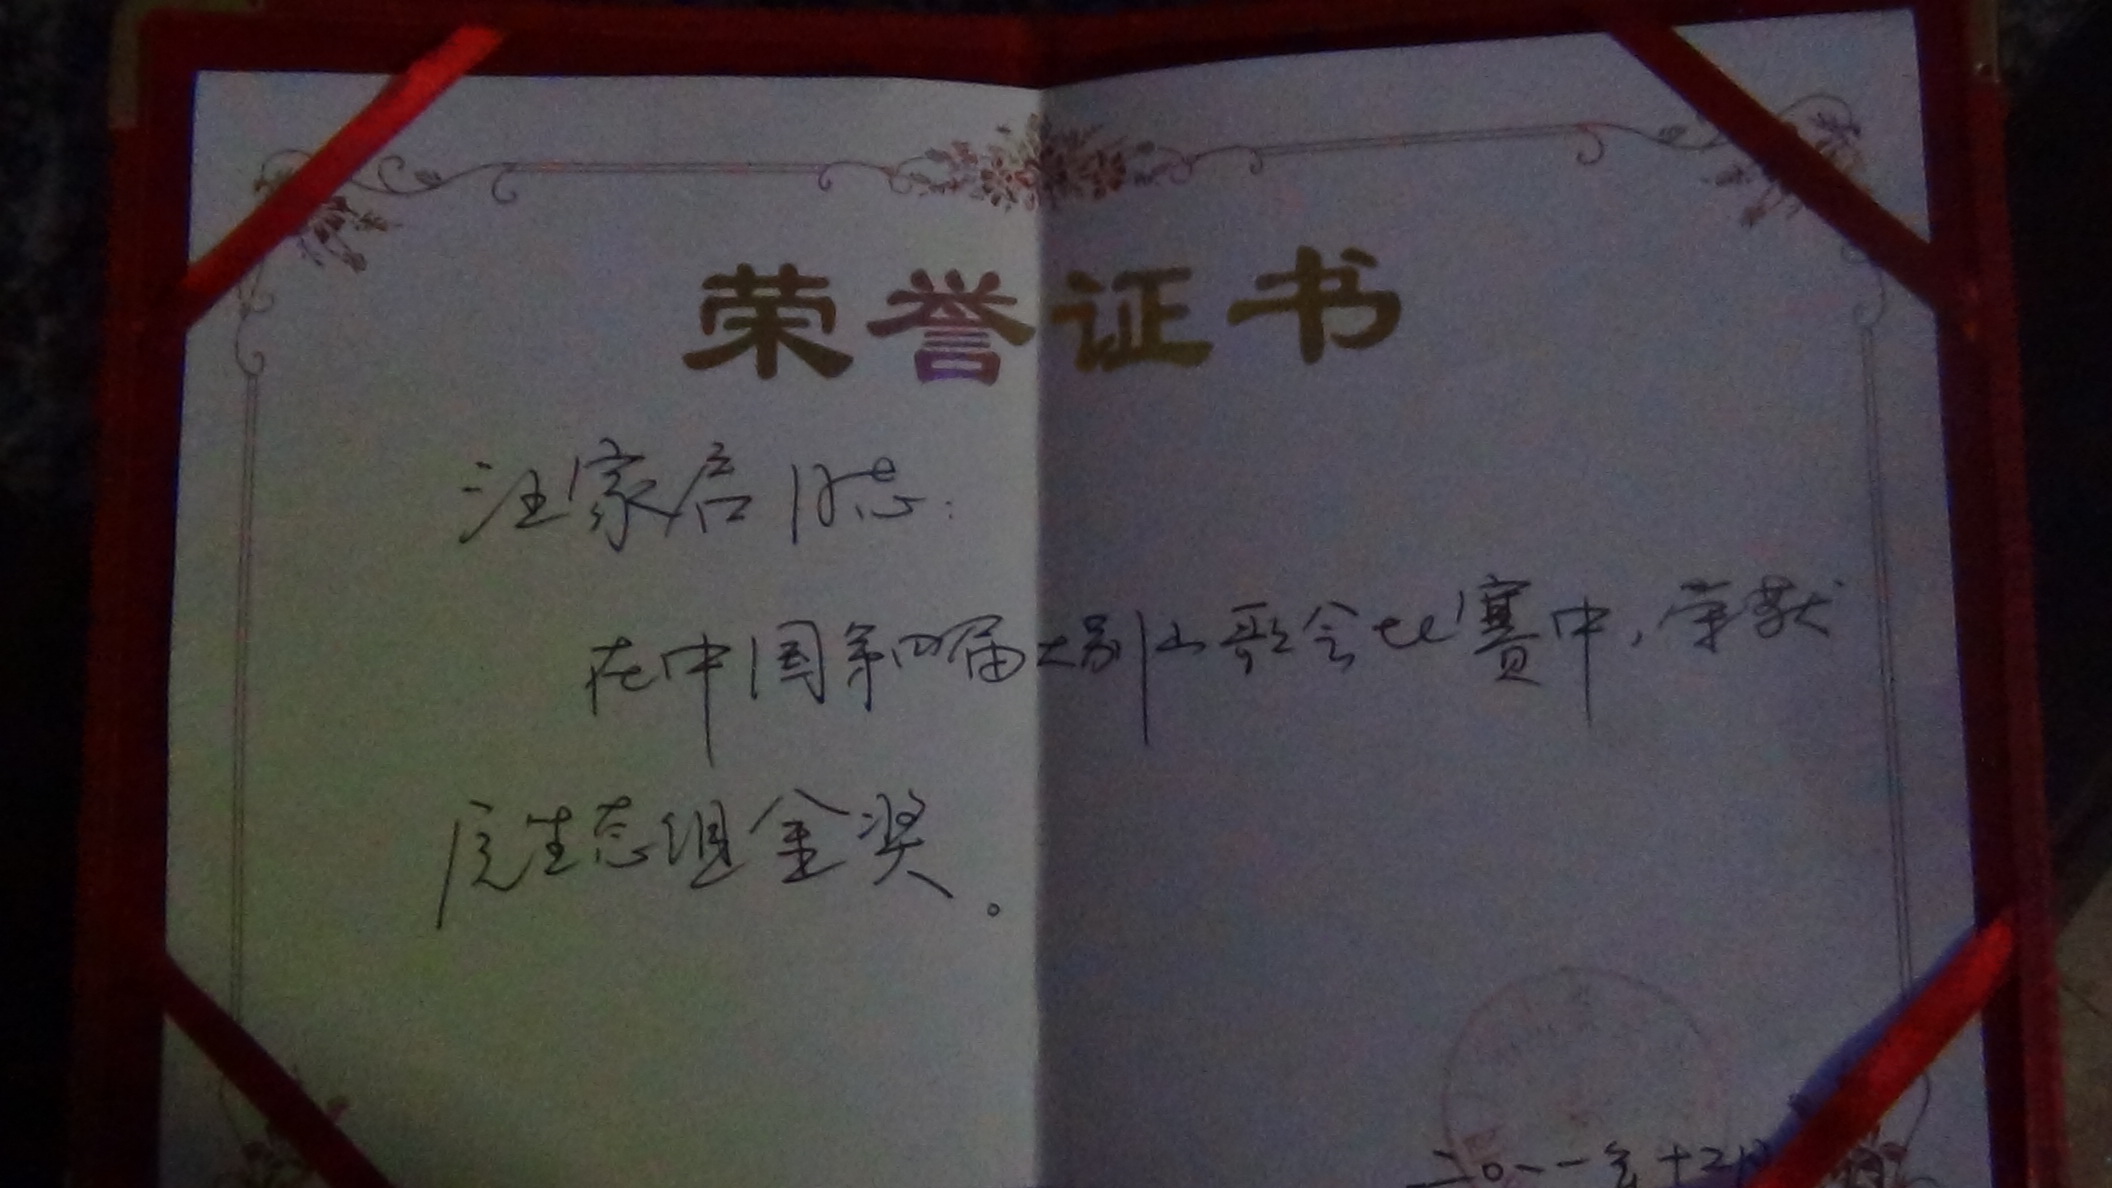 荣誉证书
汪家启同志：
在中国第四届大别山歌会比赛中，荣获
原生态组金奖。
二〇一一年十二月